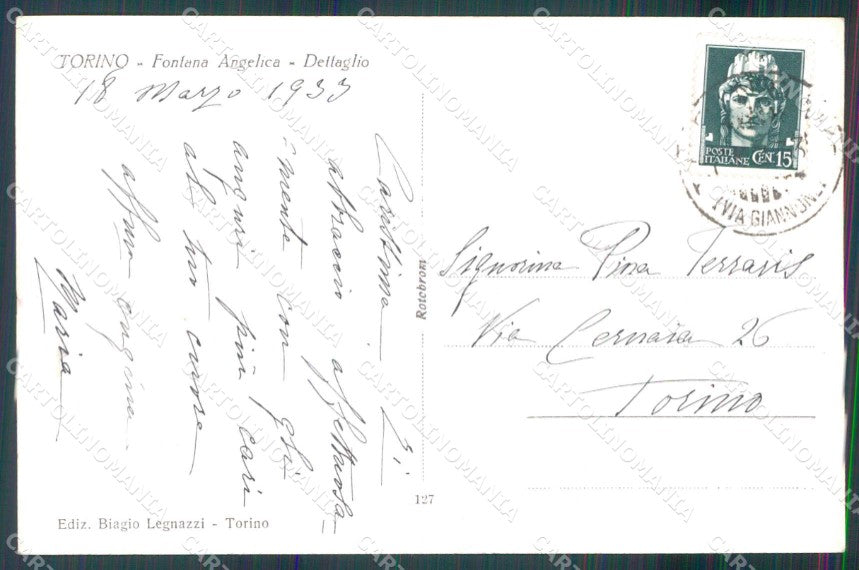 TORINO - Fontana Angelica - Dettaglio
18 Marzo 1933
Carissima
abbraccio affettuosa-
-mente con gli
auguri più cari
al tuo cuore
affma cugina
Maria
Rotobrom
127
Ediz. Biagio Legnazzi - Torino
POSTE
ITALIANE
CENT. 15
(VIA GIANNONE)
Signorina Pina Ferraris
Via Cernaia 26
Torino
CARTOLINOMANIA